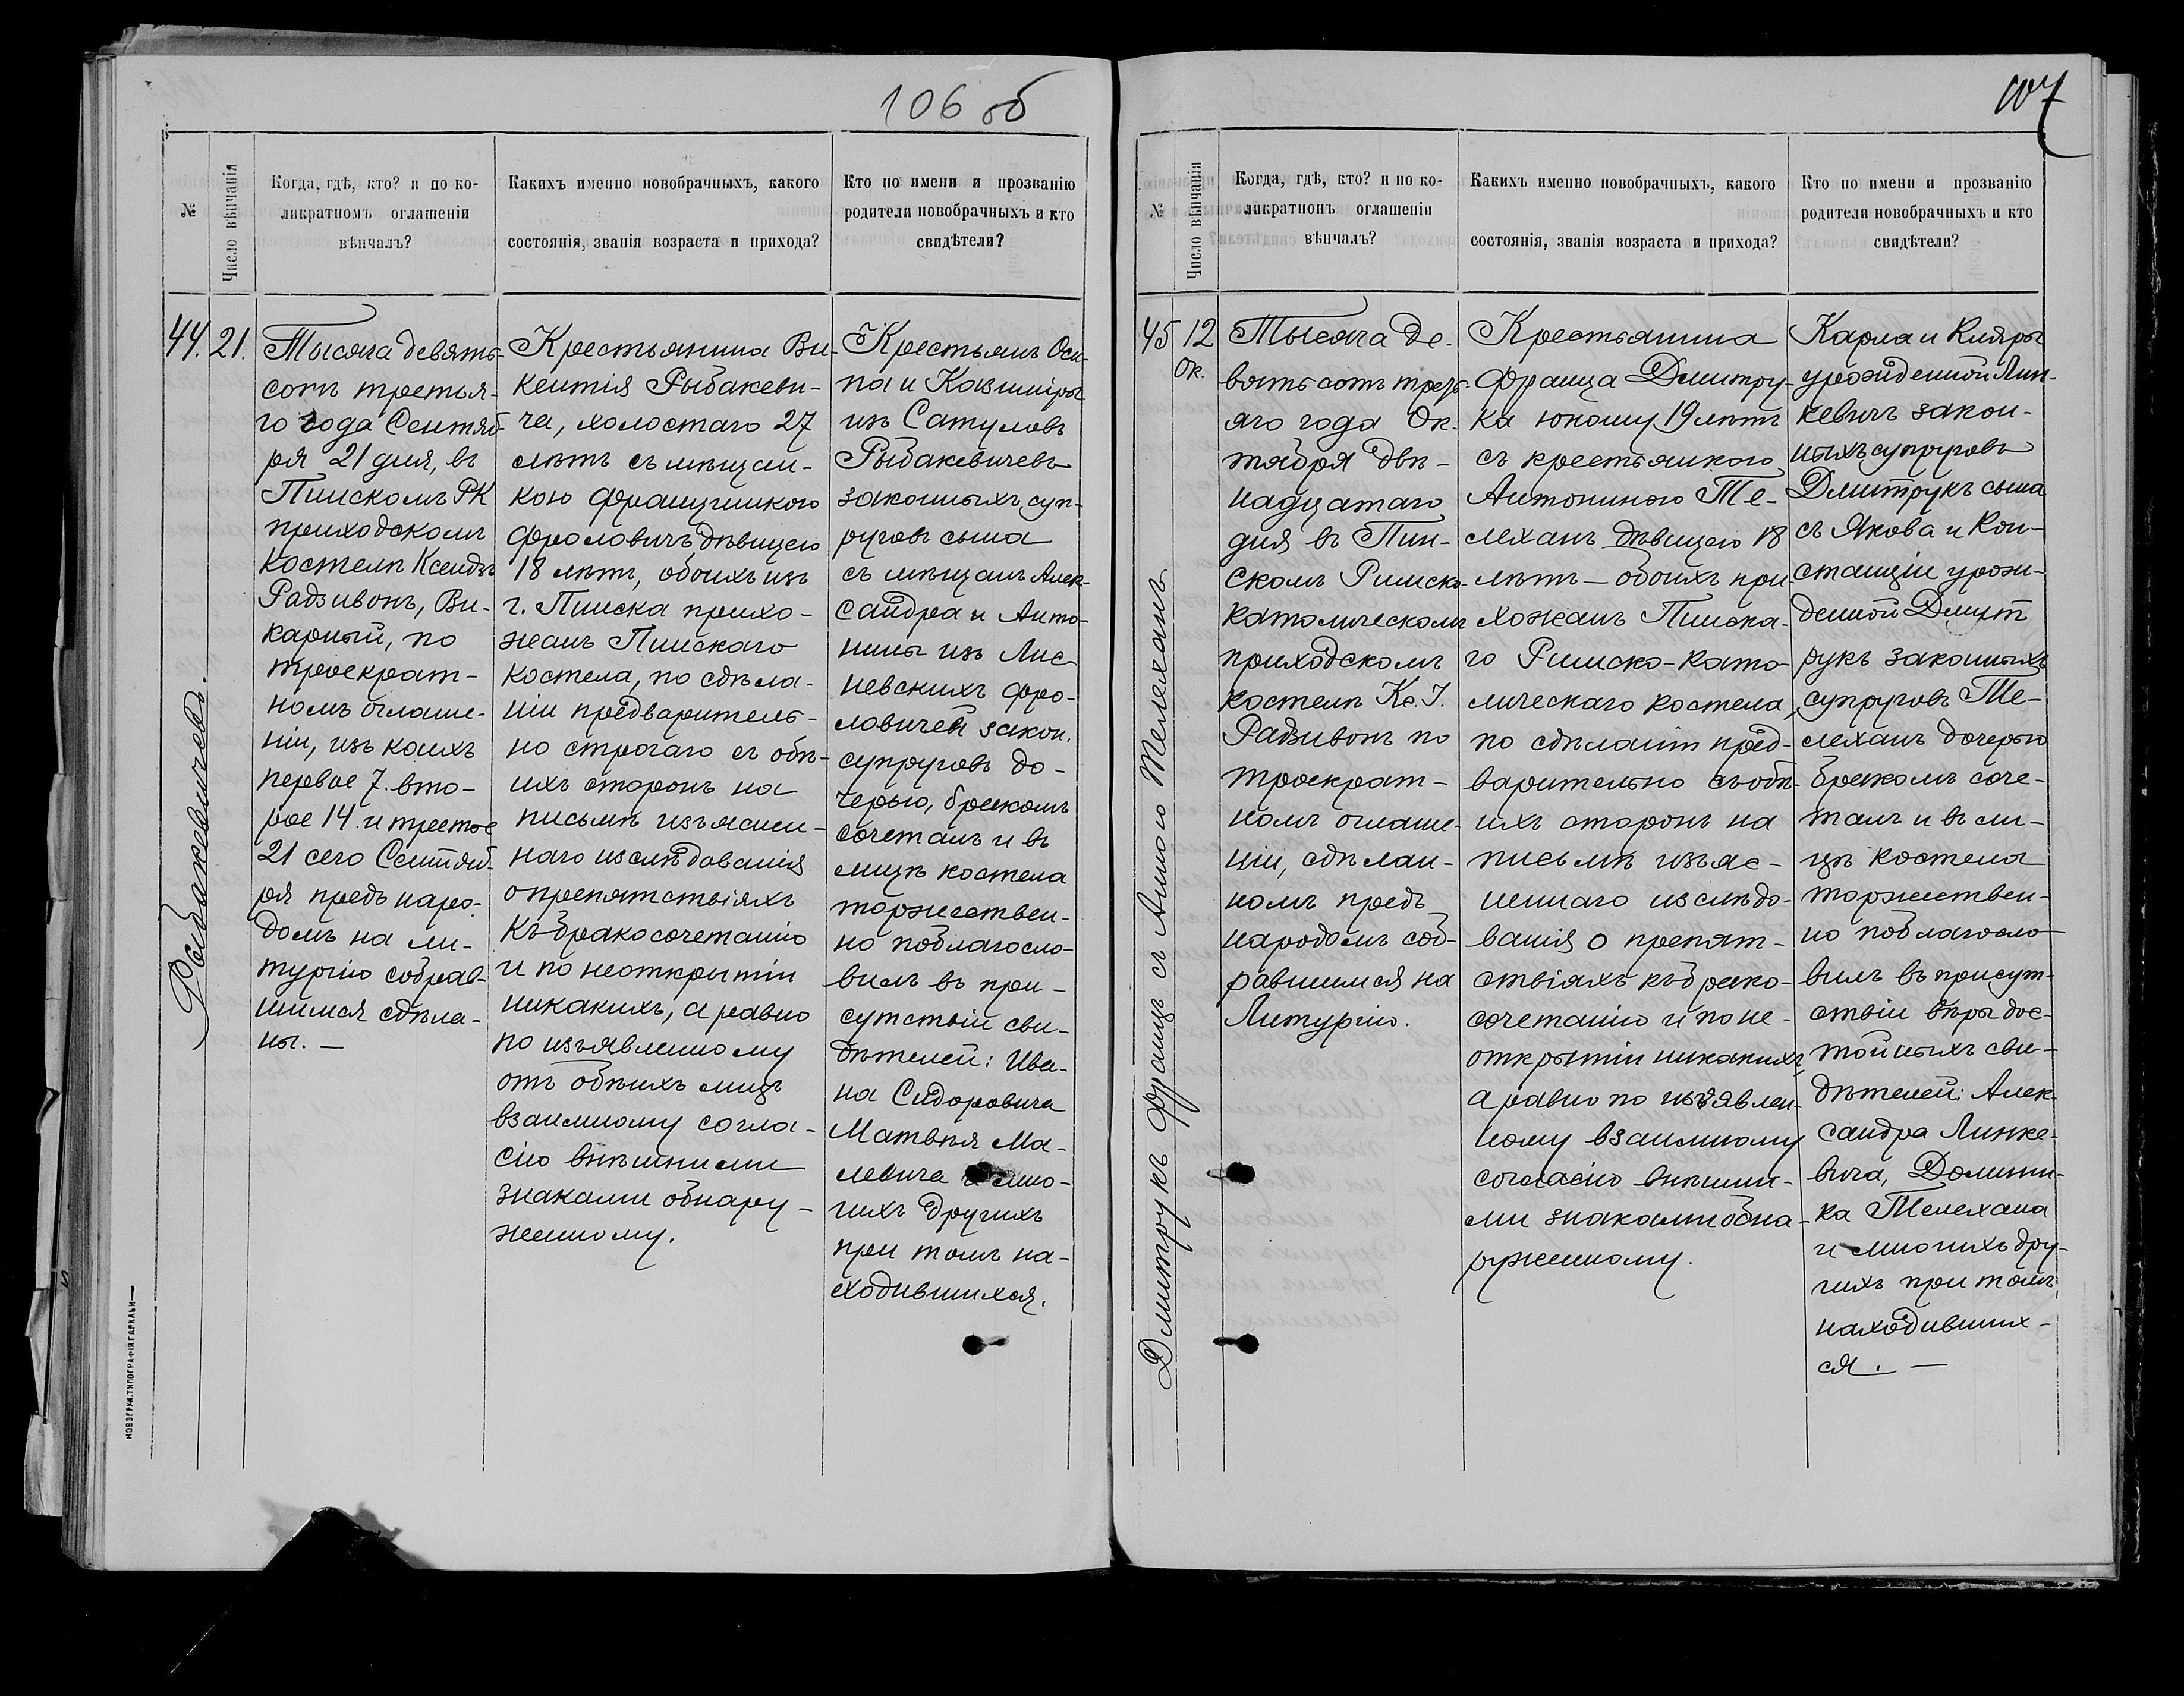 106 об
№
Число вѣнчанія
Когда, гдѣ, кто? и по ко-
ликратномъ оглашеніи
вѣнчалъ?
Какихъ именно новобрачныхъ, какого
состоянія, званія возраста и прихода?
Кто по имени и прозванію
родители новобрачныхъ и кто
свидѣтели?
44.
21.
Рыбакевичево.
Тысяча девять-
сотъ третья-
го года Сентяб-
ря 21 дня, въ
Пинскомъ РК
приходскомъ
Костелѣ Ксендзъ
Радзивонъ, Ви-
карный, по
троекрат-
номъ оглаше-
ніи, изъ коихъ
первое 7. вто-
рое 14. и третье
21 сего Сентяб-
ря предъ наро-
домъ на ли-
тургію собрав-
шимся сдѣла-
ны. —
Крестьянина Ви-
кентія Рыбакеви-
ча, холостаго 27
лѣтъ съ мѣщан-
кою Францишкою
Фроловичъ дѣвицею
18 лѣтъ, обоихъ изъ
г. Пинска прихо-
жанъ Пинскаго
костела, по сдѣла-
ніи предваритель-
но строгаго съ обѣ-
ихъ сторонъ на
письмѣ изъяснен-
наго изслѣдованія
о препятствіяхъ
къ бракосочетанію
и по неоткрытіи
никакихъ, а равно
по изъявленному
отъ обѣихъ лицъ
взаимному согла-
сію внѣшними
знаками обнару-
женному.
Крестьянъ Оси-
па и Казиміры
изъ Сатуловъ
Рыбакевичевъ
законныхъ суп-
руговъ сына
съ мѣщанъ Алек-
сандра и Анто-
нины изъ Лис-
невскихъ Фро-
ловичей закон.
супруговъ до-
черью, бракомъ
сочеталъ и въ
лицѣ костела
торжествен-
но поблагосло-
вилъ въ при-
сутствіи сви-
дѣтелей: Ива-
на Сидоровича
Матвѣя Ма-
левича и мно-
гихъ другихъ
при томъ на-
ходившихся.
НОВОГРУД. ТИПОГРАФІЯ ГАРКАВИ
107
№
Число вѣнчанія
Когда, гдѣ, кто? и по ко-
ликратномъ оглашеніи
вѣнчалъ?
Какихъ именно новобрачныхъ, какого
состоянія, званія возраста и прихода?
Кто по имени и прозванію
родители новобрачныхъ и кто
свидѣтели?
45
12
Ок.
Дмитрукъ Францъ съ Анною Телеханъ
Тысяча де-
вятьсотъ треть-
яго года Ок-
тября двѣ-
надцатаго
дня въ Пин-
скомъ Римско-
католическомъ
приходскомъ
костелѣ Кс. І.
Радзивонъ по
троекрат-
номъ оглаше-
ніи, сдѣлан-
номъ предъ
народомъ соб-
равшимся на
Литургію.
Крестьянина
Франца Дмитру-
ка юношу 19 лѣтъ
съ крестьянкою
Антониною Те-
леханъ дѣвицею 18
лѣтъ — обоихъ при-
хожанъ Пинска-
го Римско-като-
лическаго костела,
по сдѣланіи пред-
варительно съ обѣ-
ихъ сторонъ на
письмѣ изъяс-
неннаго изслѣдо-
ванія о препят-
ствіяхъ къ брако-
сочетанію и по не-
открытіи никакихъ,
а равно по изъявлен-
ному взаимному
согласію внѣшни-
ми знаками обна-
руженному.
Карла и Кляры
урожденной Лин-
кевичъ закон-
ныхъ супруговъ
Дмитрукъ сына
съ Якова и Кон-
станціи урож-
денной Дмит
рукъ законныхъ
супруговъ Те-
леханъ дочерью
бракомъ соче-
талъ и въ ли-
цѣ костела
торжествен-
но поблагосло-
вилъ въ присут-
ствіи вѣры дос-
тойныхъ сви-
дѣтелей: Алек-
сандра Линке-
вича, Домини-
ка Телехана
и многихъ дру-
гихъ при томъ
находивших-
ся. —